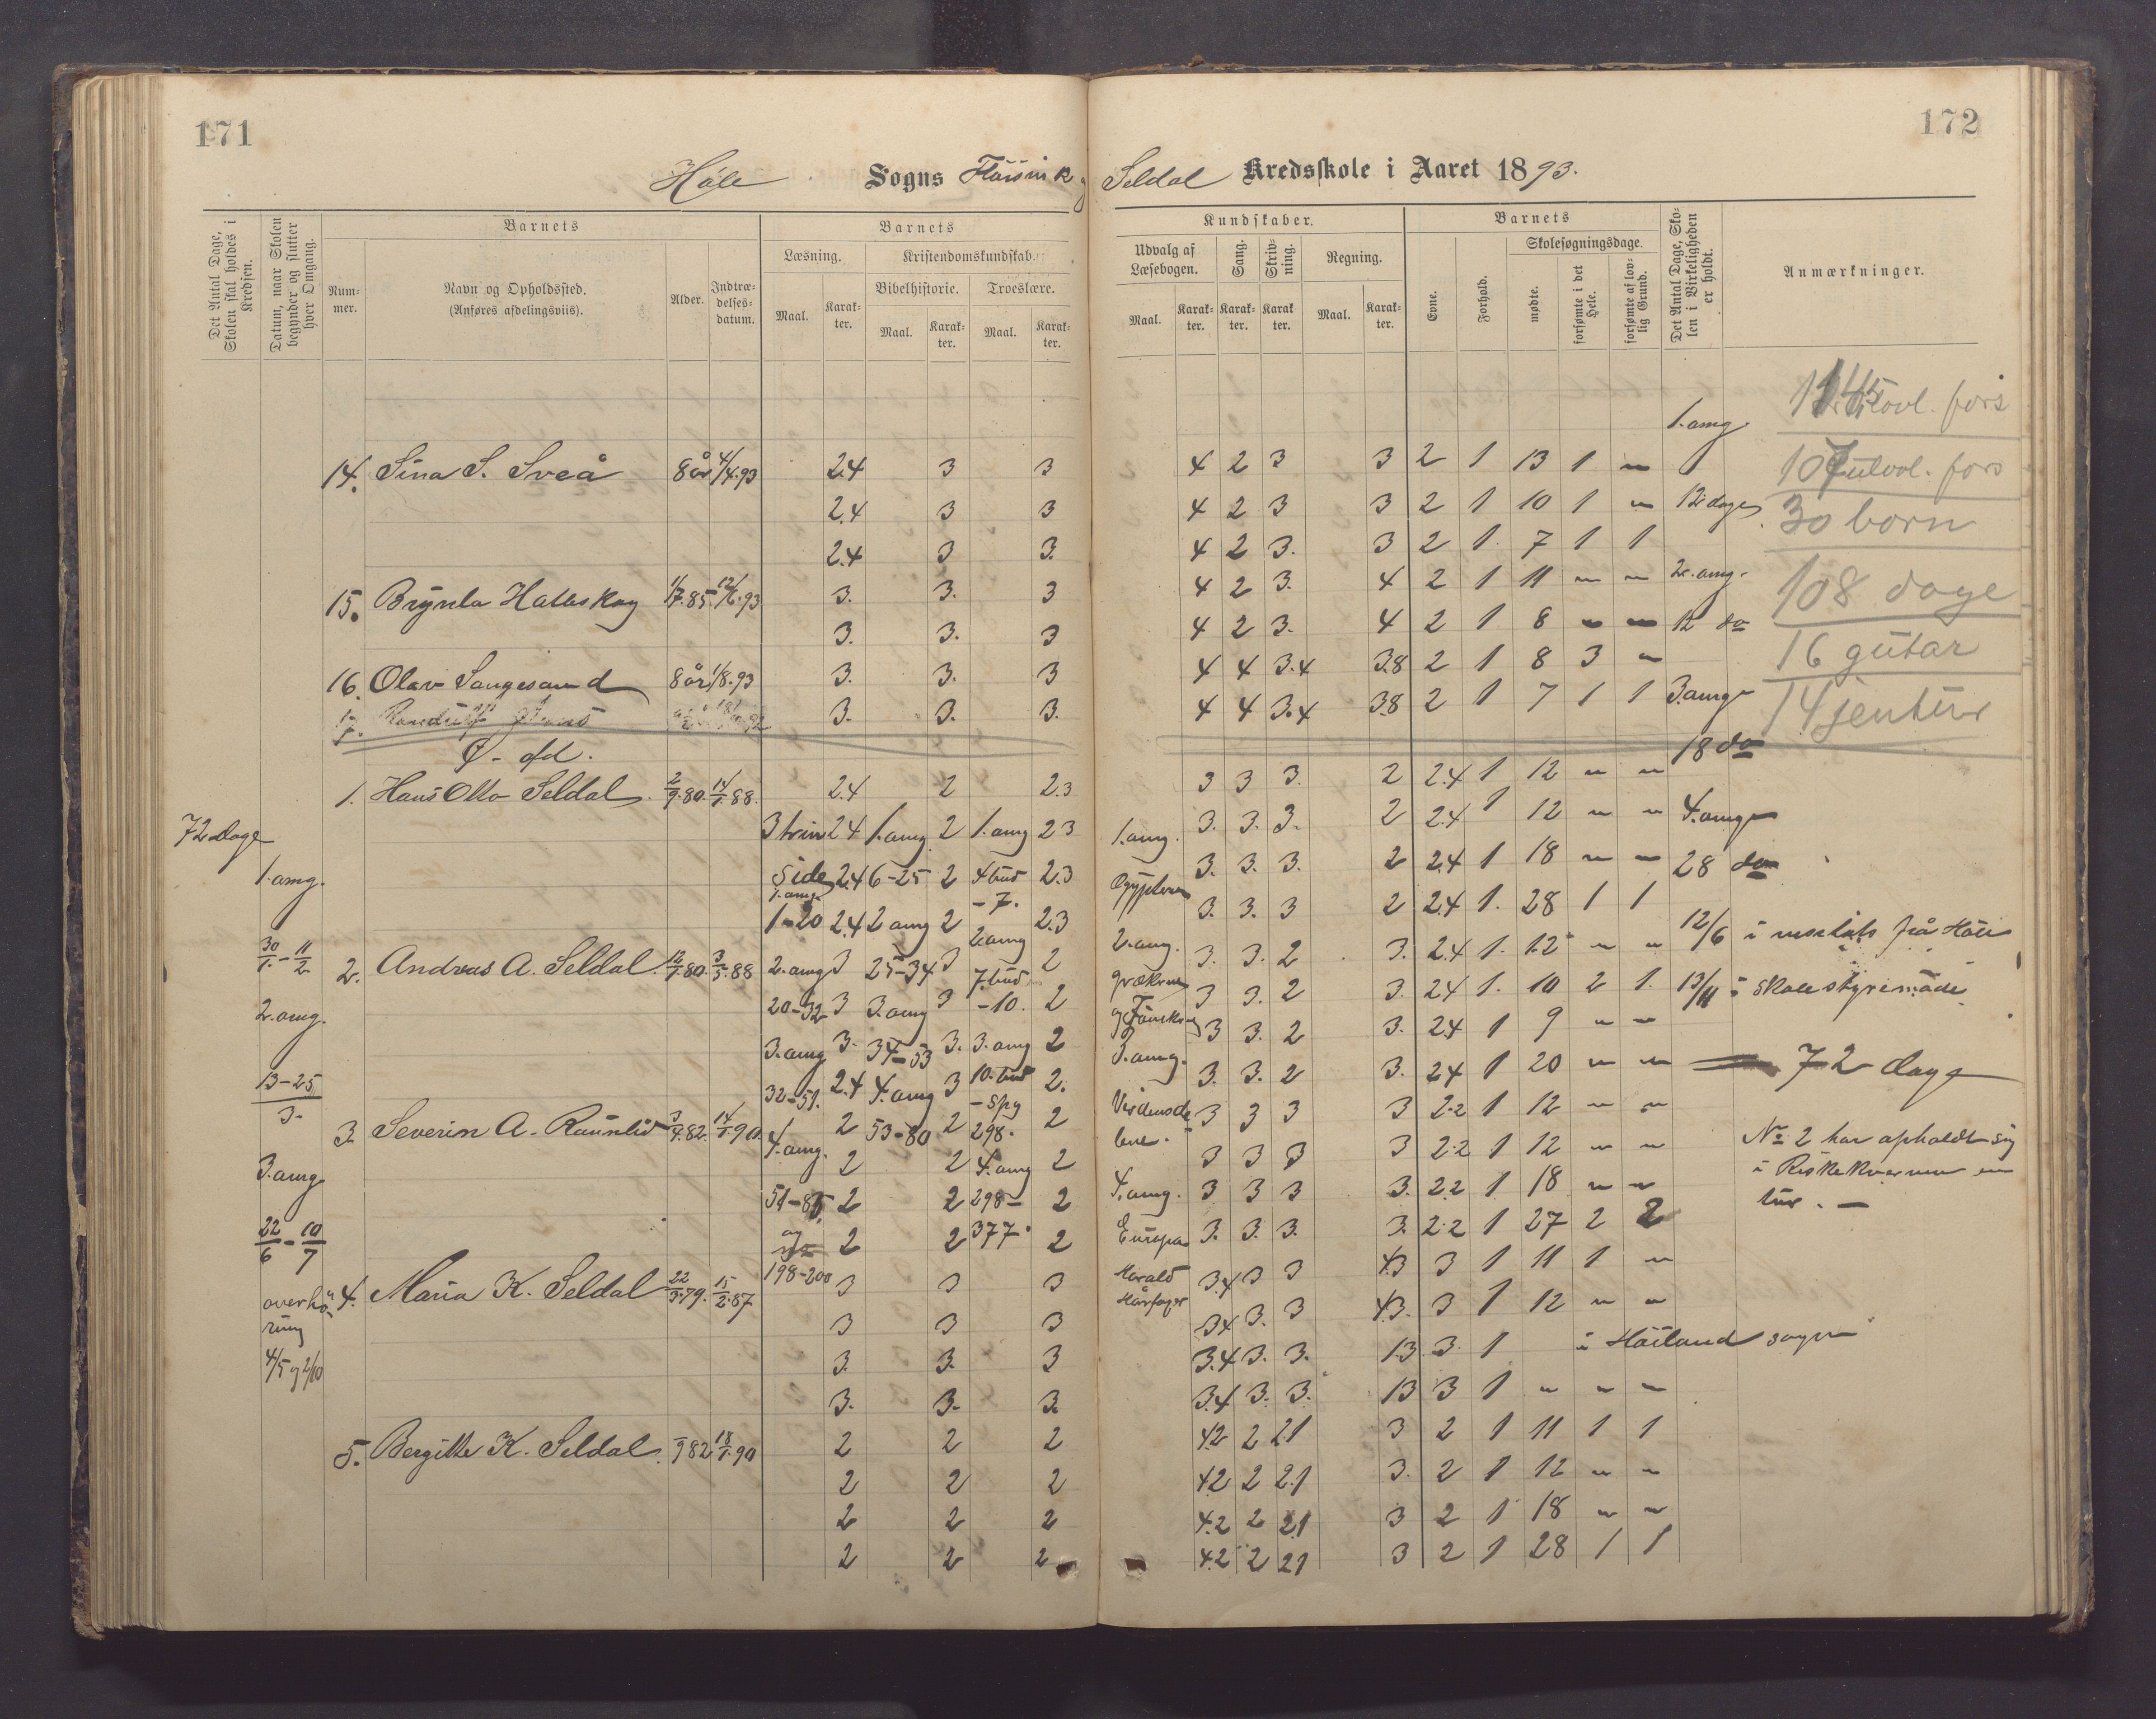 171
Høle Sogns
Det Antal Dage, Skolen skal holdes i Kredsen.
Datum, naar Skolen begynder og slutter hver Omgang.
Barnets
Num-mer.
Navn og Opholdssted.
(Anføres afdelingsviis).
Alder.
Indtræ-delses-datum.
Barnets
Læsning.
Kristendomskundskab.
Bibelhistorie. Troeslære.
Maal. Karak-ter. Maal. Karak-ter. Maal. Karak-ter.
14. Sina S. Sveå 8 år 4/4.93 2.4 3 3
2.4 3 3
2.4 3 3.
15. 3. 3. 3
3. 3. 3
16. Olav 8 år 1/8.93 3. 3. 3
17. 3. 3. 3.
1. Hans Otto Seldal 2/9.80. 14/1.88. 2.4 2 2.3
72 dage
3 trin 2.4 1. omg. 2 1. omg 2 3
1. omg.
Side 2.4 6-25 2 4 bud 2.3
1. omg. - 7.
1-20 2.4 2 omg 2 2 omg 2.3
30/1. - 11/2.
2. Andreas A. Seldal 12/1.80. 3/5.88 2. omg 3 25-34 3 7. bud 2
2. omg.
20-32 3 3. omg 3 -10. 2
3. omg 3. 34-53 3. 3. omg 2
13-25
3.
32-51. 2.4 4. omg 3 10. bud 2.
- spg
3. Severin A. 3/4.82. 14/1.90. 2 53-80 2 298. 2
3. omg
4. omg. 2 2 4. omg 2
51-85 2 2 298- 2
22/6 - 10/7
og 2 2 377. 2
198-200
4. Maria K. Seldal 22/3.79. 15/2.87 3 3 3
overhø-
ring
3 3 3
4/5 og 2/10
3. 3. 3
3. 3. 3.
5. Bergitte K. Seldal. 18/1.90 2 2 2
2 2 2
2 2 2
2 2 2
172
Seldal Kredsskole i Aaret 1893.
Kundskaber.
Udvalg af Læsebogen.
Sang.
Skriv-ning.
Regning.
Maal. Karak-ter. Karak-ter. Karak ter. Maal. Karak-ter.
Barnets
Evne.
Forhold.
Skolesøgningsdage.
mødte.
forsømte i det Hele.
forsømte af lov-lig Grund.
Det Antal Dage, Sko-len i Virkeligheden er holdt.
Anmærkninger.
1. omg.
4 2 3 3 2 1 13 1 "
4 2 3 3 2 1 10 1 " 12 dage
30 born
4 2 3. 3 2 1. 7 1 1
4 2 3. 4 2 1 11 " " 2. omg.
108 dage
4 2 3. 4 2 1 8 " " 12 do
4 4 3.4 3.8 2 1 8 3 "
16 gutar
4 4 3.4 3.8 2 1 7 1 1 3. omg
14 jentur
18 do
3 3 3. 2 2.4 1 12 " "
1. omg. 3. 3. 3. 2 2.4 1 12 " " 4. omg
3. 3. 3. 2 2.4 1 18 " " 28 do
3. 3. 3 2 2.4 1. 28 1 1
2. omg. 3. 3. 2 3. 2.4 1. 12 " " 12/6 i møde
3 3. 2 3. 2.4 1. 10 2 1. 13/11 i skolestyremøde
3 3. 2 3. 2.4 1 9 " "
3. omg.
3. 3. 2 3. 2.4 1 20 " " 72 dage
3 3 3 3 2.2 1 12 " "
3 3 3 3 2.2 1 12 " " No 2 har opholdt sig
i en
4. omg. 3 3 3 3. 2.2 1 18 " "
tur. -
Europa 3. 3. 3. 3. 2.2 1 27 2 2
Harald 3.4 3 3 4.3 3 1 11 1 "
Hårfager
3.4 3. 3 4.3. 3 1 12 " "
3.4 3. 3. 13. 3. 1 i Høiland sogn
3.4 3. 3. 13 3 1 " " "
4.2 2 2.1 3 2 1 11 1 1
4.2 2 2.1 3. 2 1 12 " "
4.2 2 2.1 3 2 1 18 " "
4.2 2 2.1 3 2 1 28 1 1